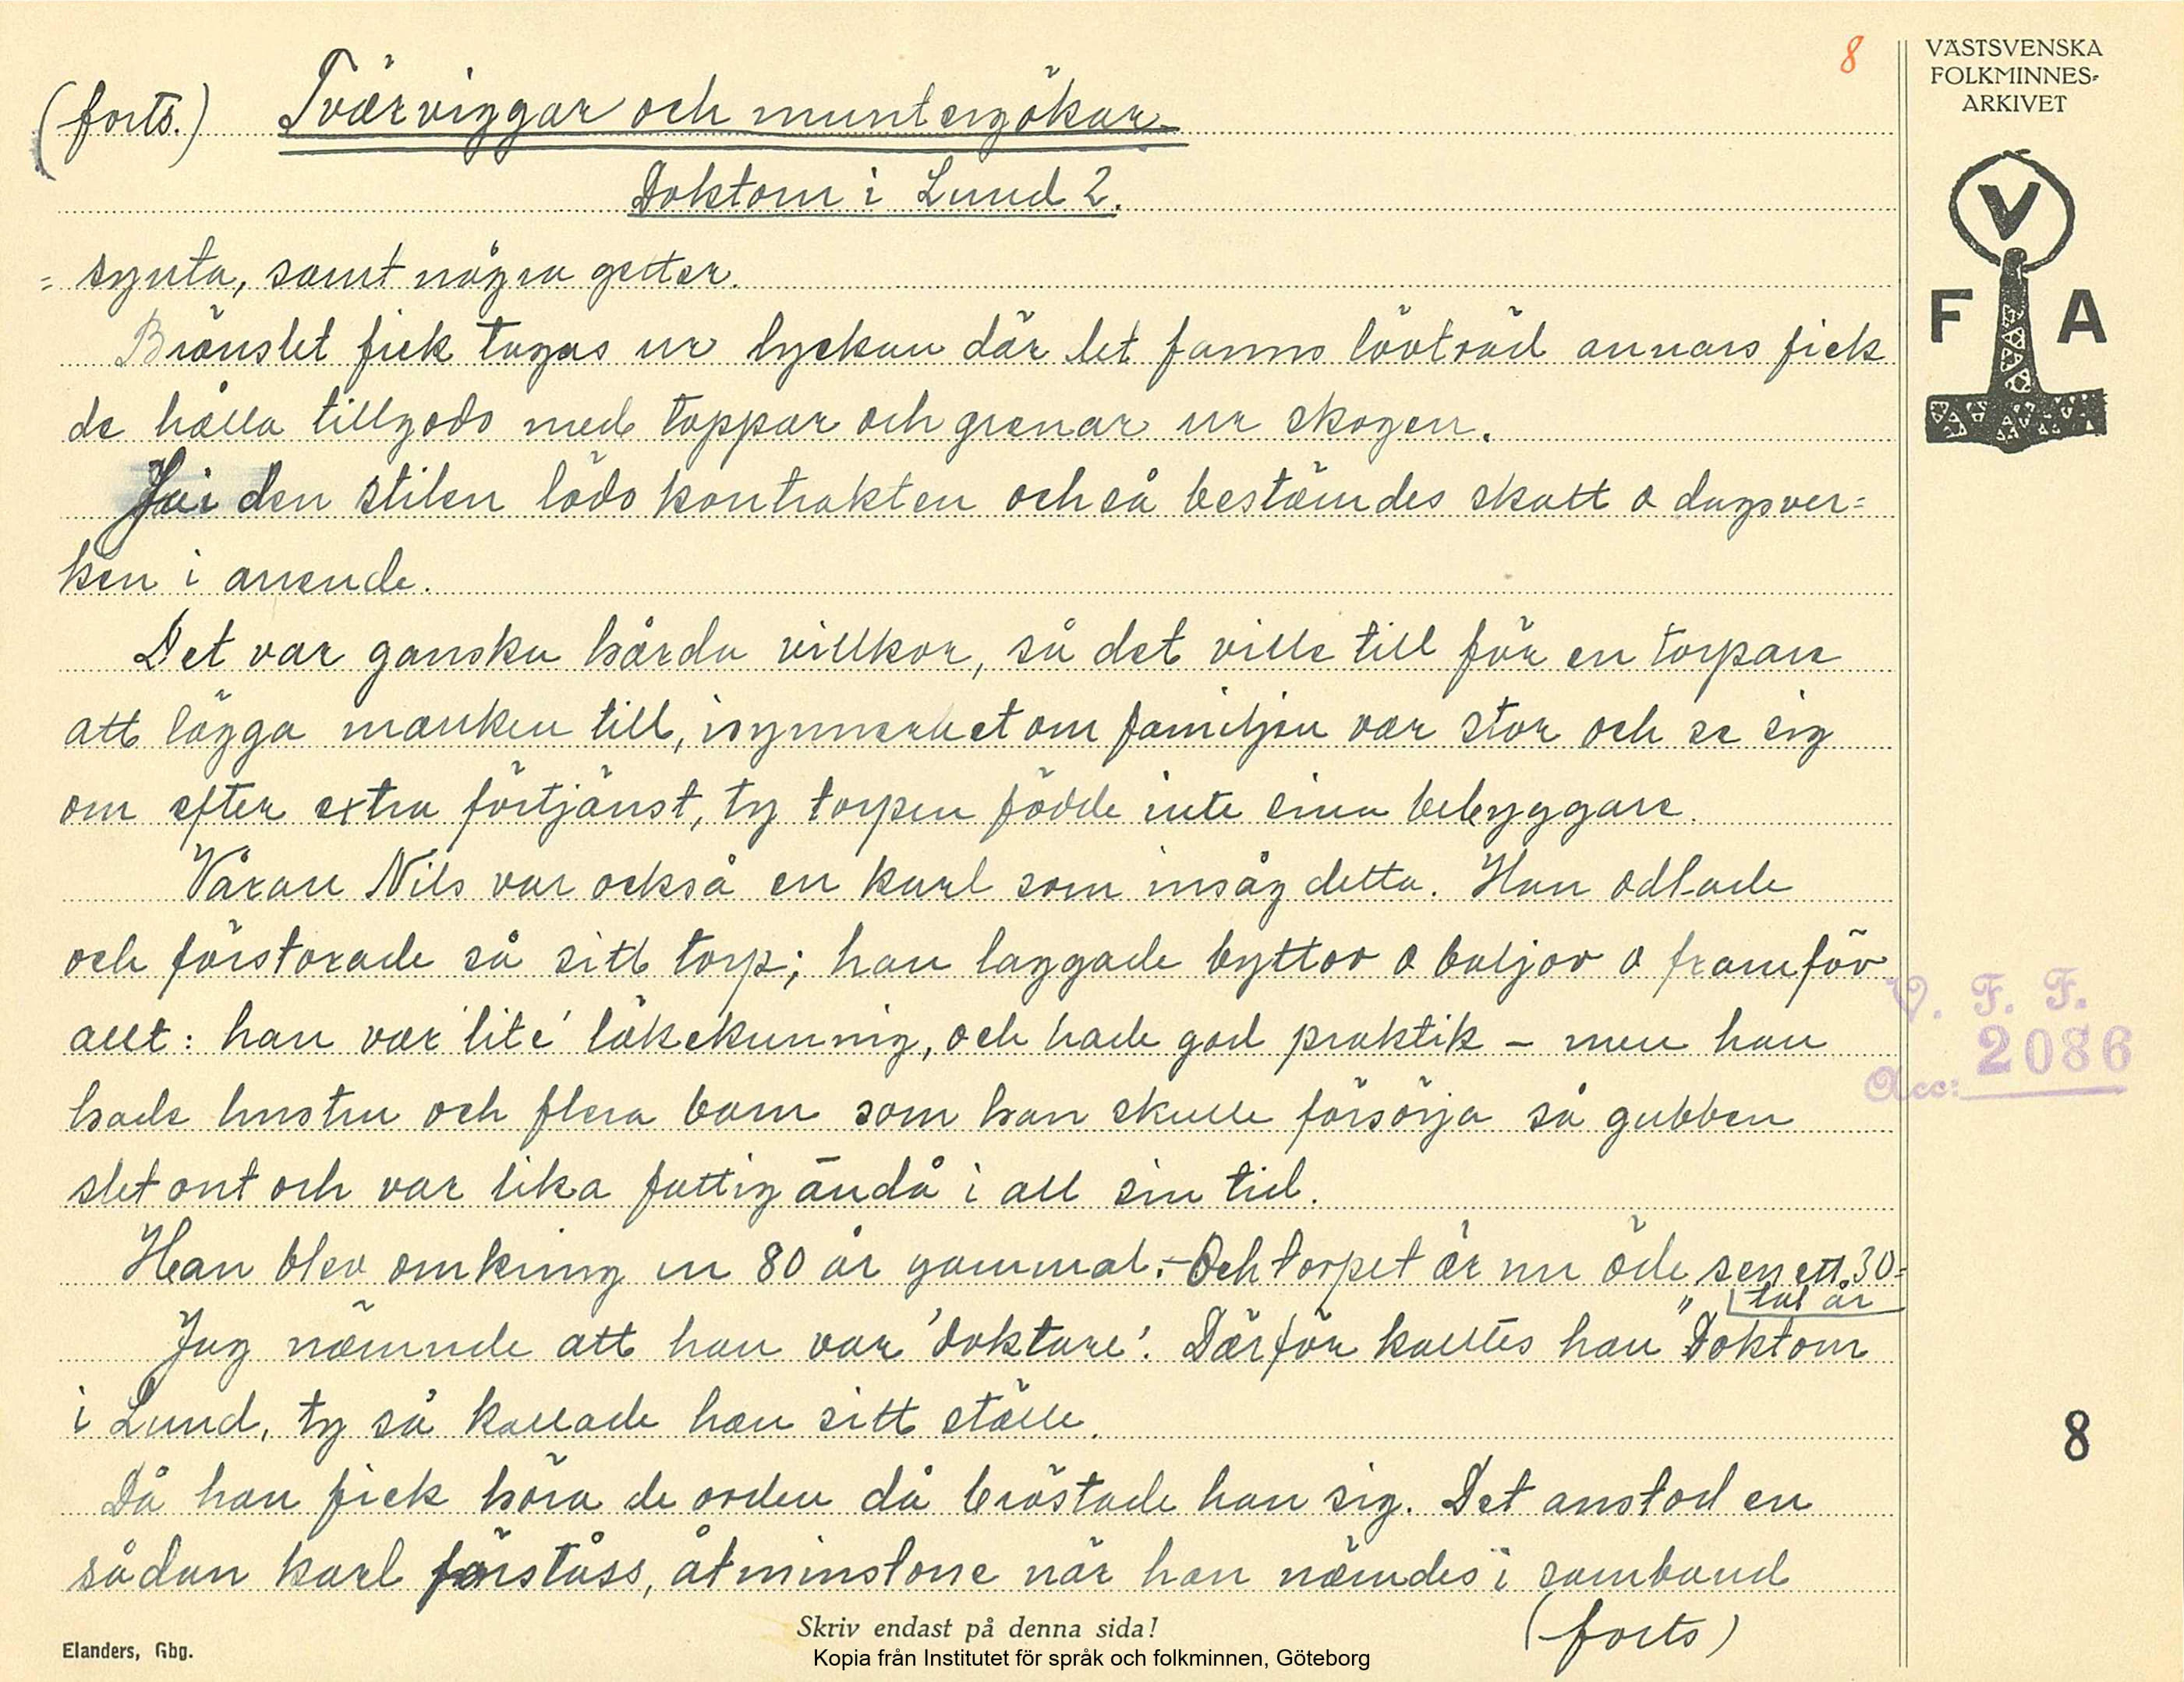 8
VÄSTSVENSKA
FOLKMINNES-
ARKIVET
V
F A
(forts.) Tvärviggar och muntergökar.
Doktorn i Lund 2.
= synta, samt några getter.
Bränslet fick tagas ur lyckan där det fanns lövträd annars fick
de hålla tillgodo med toppar och grenar ur skogen.
Ja i den stilen löds kontrakten och så bestämdes skatt o dagsver=
ken i arende.
Det var ganska hårda villkor, så det ville till för en torpare
att lägga manken till, isynnerhet om familjen var stor och se sig
om efter extra förtjänst, ty torpen födde inte sina bebyggare.
Våran Nils var också en karl som insåg detta. Han odlade
och förstorade så sitt torp; han laggade byttor o baljor o framför
allt: han var 'lite' läkekunnig, och hade god praktik – men han
hade hustru och flera barn som han skulle försörja så gubben
slet ont och var lika fattig ändå i all sin tid.
Han blev omkring en 80 år gammal. – Och torpet är nu öde sen ett 30=
tal år
Jag nämnde att han var 'doktare'. Därför kalltes han "Doktorn
i Lund, ty så kallade han sitt ställe.
Då han fick höra de orden då bröstade han sig. Det anstod en
sådan karl förståss, åtminstone när han nämdes i samband
(forts)
V. F. F.
2086
Acc:
8
Skriv endast på denna sida!
Elanders, Gbg.
Kopia från Institutet för språk och folkminnen, Göteborg